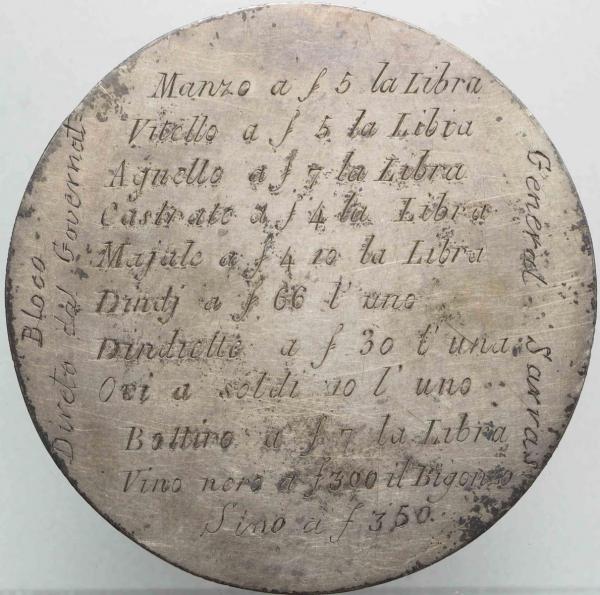 Manzo a f 5 la Libra
Vitello a f 5 la Libra
Agnello a f 7 la Libra
Castrato a f 4 la Libra
Majale a f 4 10 la Libra
Dindj a f 66 l' uno
Dindiette a f 30 l' una
Ovi a soldi 10 l' uno
Bottiro a f 7 la Libra
Vino nero a f 300 il Bigonzo
Sino a f 350.
Bloco
Direto dal Governat=
General Sarras